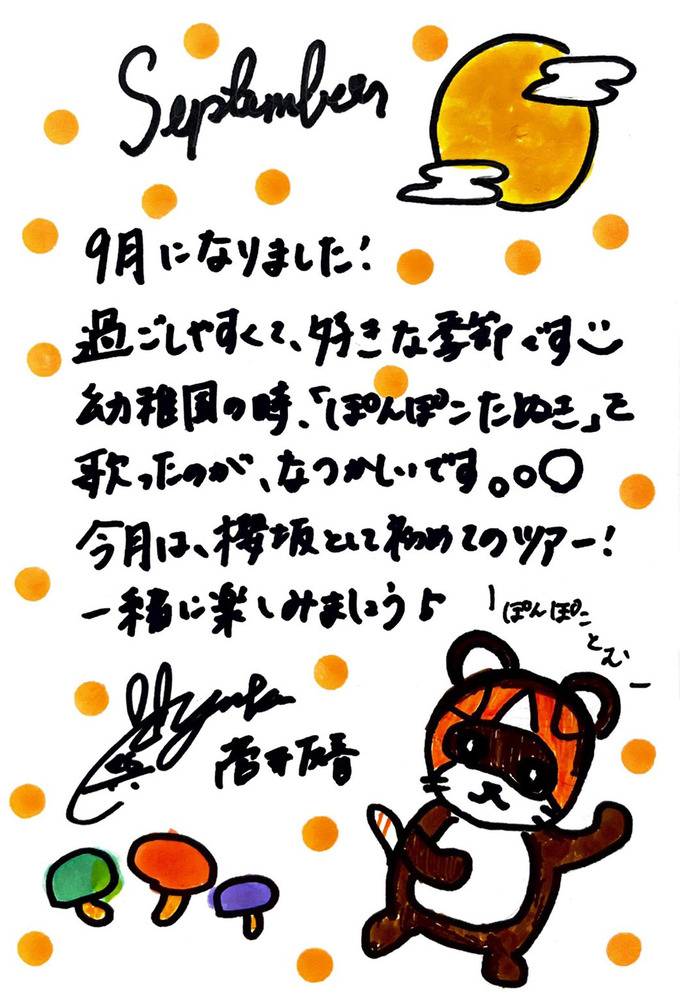 September
9月になりました!
過ごしやすくて、好きな季節です
幼稚園の時、「ぽんぽこたぬき」を
歌ったのが、なつかしいです。。○
今月は、櫻坂として初めてのツアー!
一緒に楽しみましょう♪
ぽんぽこ
とむ
Yuuka
菅井友香